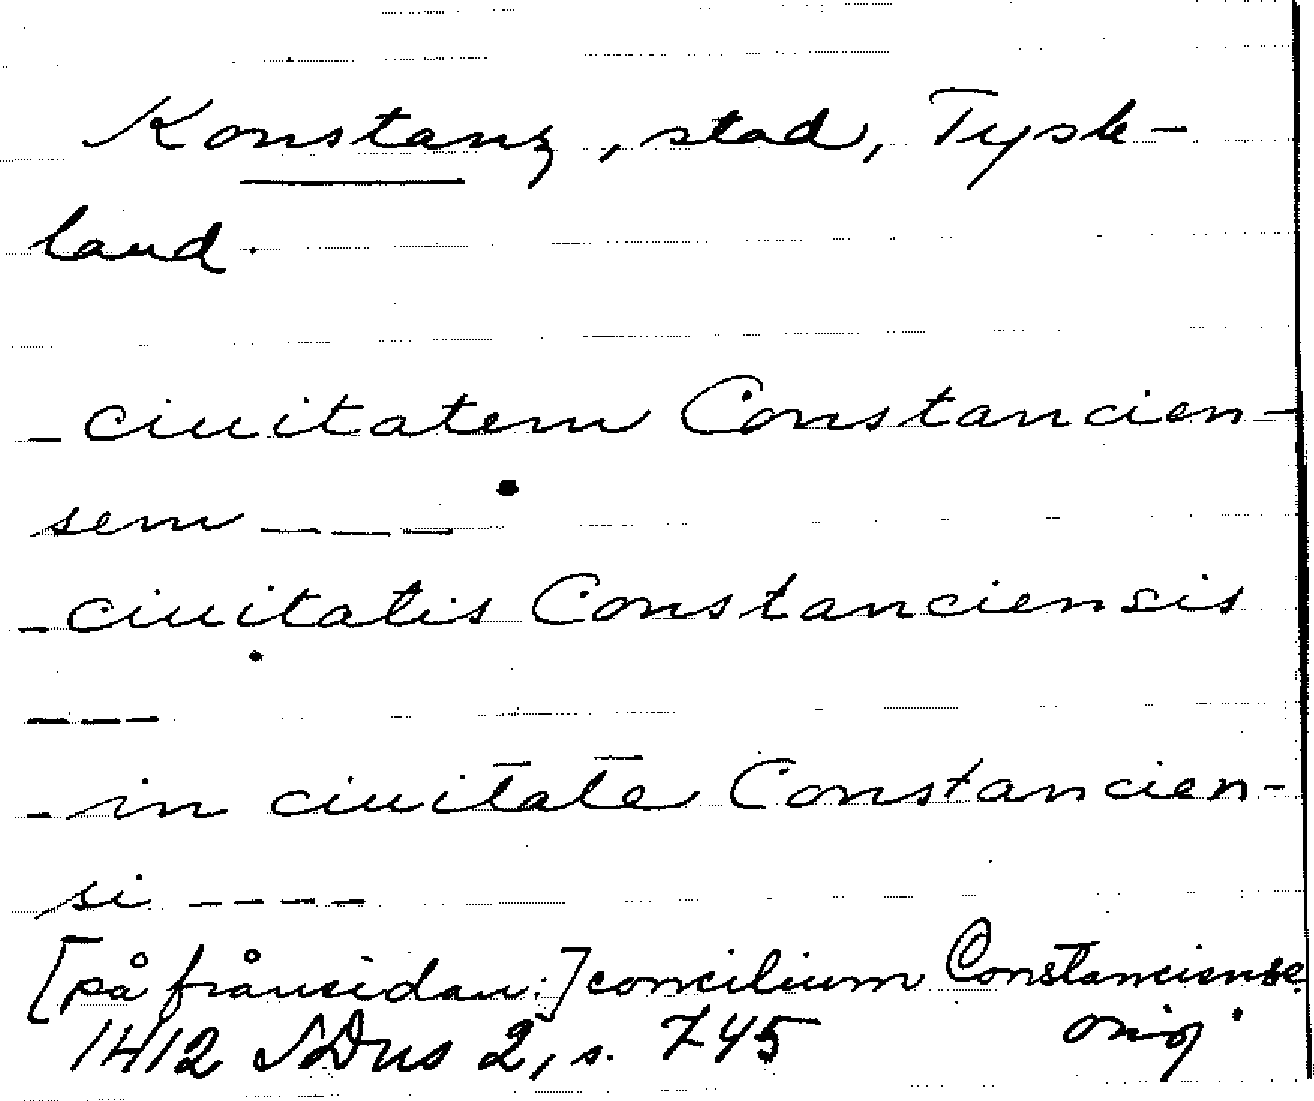 Konstanz, stad, Tysk-
land.
- ciuitatem Constancien-
sem ----
- ciuitatis Constanciensis
---
- in ciuitate Constancien-
si ----
[på frånsidan:] concilium Constanciense
1412 SDns 2, s. 745 orig.